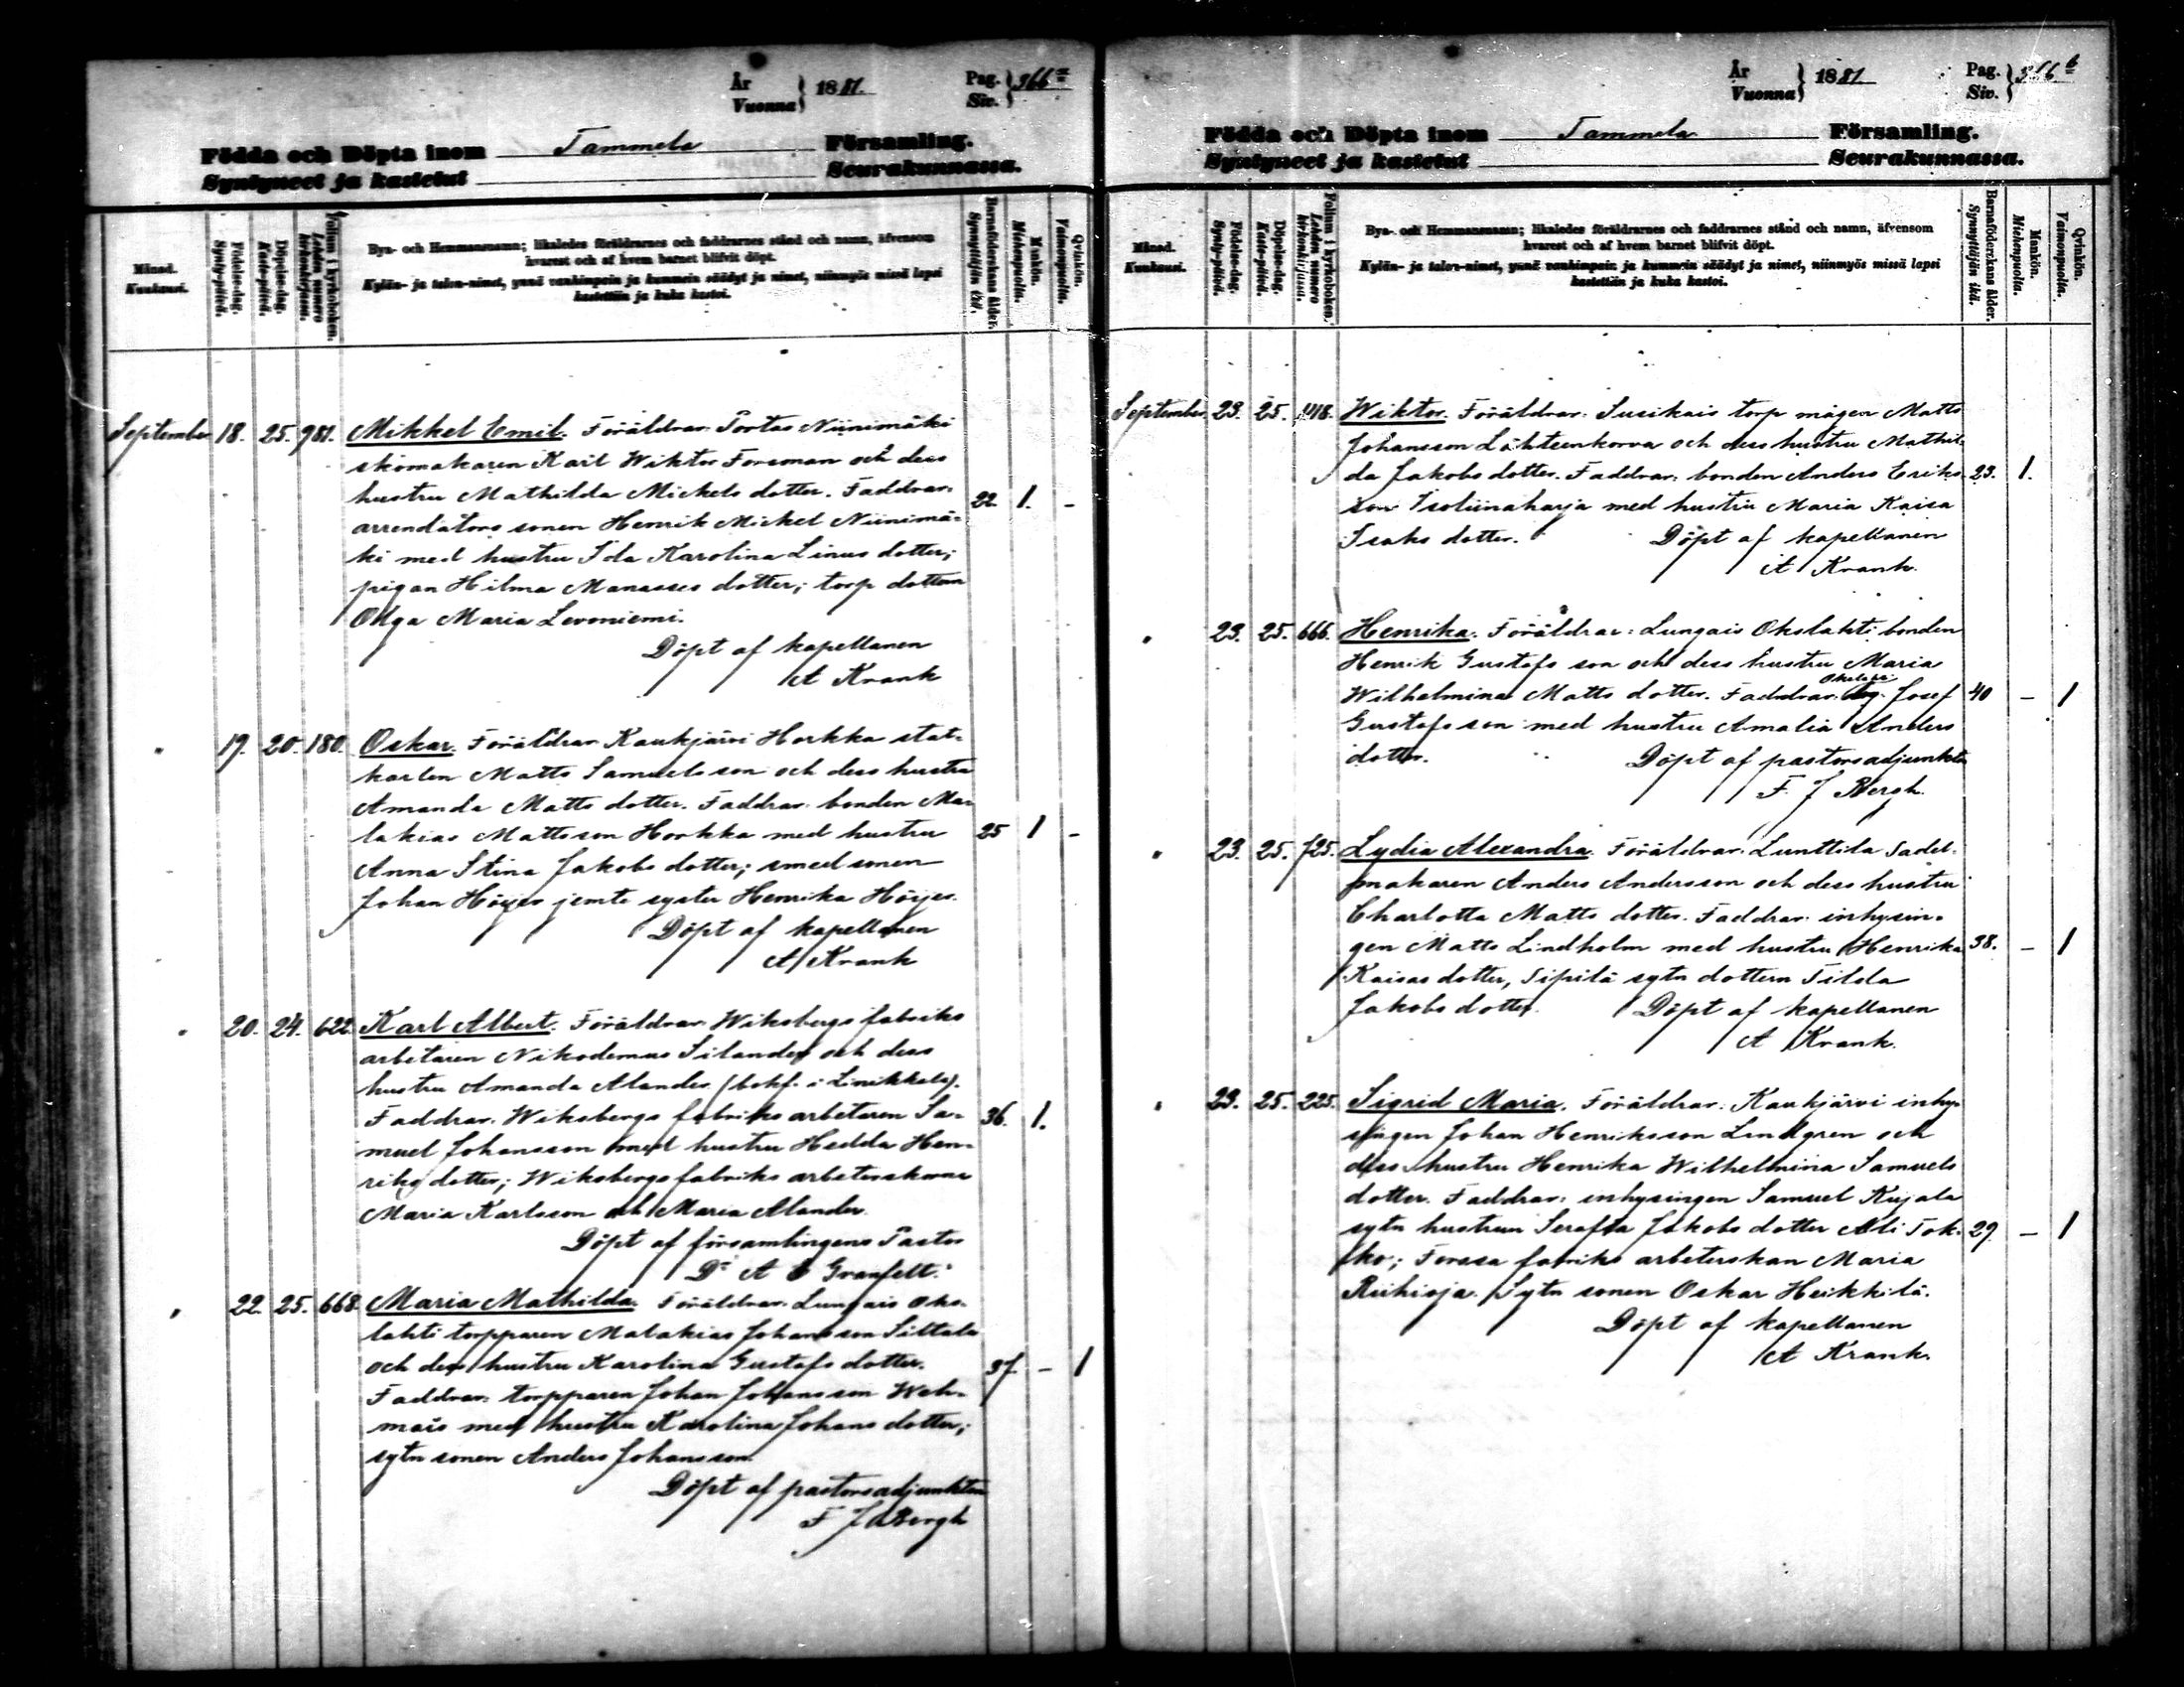 År
Vuonna } 1881. Pag.
Siv. } 366 a
Födda och Döpta inom Tammela Församling.
Syntyneet ja kastetut Seurakunnassa.
Månad.
Kuukausi.
Födelse-dag.
Synty-päivä.
Döpelse-dag.
Kaste-päivä.
Folium i kyrkoboken.
Lehden numero
kirkonkirjassa.
Bya- och Hemmansnamn; likaledes föräldrarnes och faddrarnes stånd och namn, äfvensom
hvarest och af hvem barnet blifvit döpt.
Kylän- ja talon-nimet, ynnä vanhimpain ja kummein säädyt ja nimet, niinmyös missä lapsi
kastettiin ja kuka kastoi.
Barnaföderskans ålder.
Synnyttäjän ikä.
Mankön.
Miehenpuolia.
Qvinkön.
Vaimonpuolia.
September 18. 25. 981. Mikkel Emil. Föräldrar: Portas Niinimäki
skomakaren Karl Wiktor Forsman och dess
hustru Mathilda Mickels dotter. Faddrar: 22. 1. -
arrendators sonen Henrik Mickel Niinimä-
ki med hustru Ida Karolina Linus dotter;
pigan Hilma Manasses dotter; torp dottern
Olga Maria Levoniemi.
Döpt af kapellanen
A Krank
" 19. 20. 180. Oskar. Föräldrar: Kaukjärvi Horkka stat-
karlen Matts Samuelsson och dess hustru
Amanda Matts dotter. Faddrar: bonden Ma-
lakias Mattsson Horkka med hustru 25 1 -
Anna Stina Jakobs dotter; smedsonen
Johan Höijer jemte syster Henrika Höijer.
Döpt af kapellanen
A Krank
" 20. 24. 622. Karl Albert. Föräldrar: Wiksbergs fabriks
arbetaren Nikodemus Silander och dess
hustru Amanda Alander (bokf. i Linikkala).
Faddrar: Wiksbergs fabriks arbetaren Sa- 36. 1.
muel Johansson med hustru Hedda Hen-
riks dotter; Wiksbergs fabriks arbeterskorna
Maria Karlsson och Maria Alander.
Döpt af församlingens Pastor
Dr A Granfelt.
" 22. 25. 668. Maria Mathilda. Föräldrar: Lungais Oks-
lahti torpparen Malakias Johansson Siltala
och dess hustru Karolina Gustafs dotter. 37. - 1
Faddrar: torpparen Johan Johansson Weh-
mais med hustru Karolina Johans dotter;
sytn sonen Anders Johansson.
Döpt af pastorsadjunkten
F J Bergh
År
Vuonna } 1881 Pag.
Siv. } 366 b
Födda och Döpta inom Tammela Församling.
Syntyneet ja kastetut Seurakunnassa.
Månad.
Kuukausi.
Födelse-dag.
Synty-päivä.
Döpelse-dag.
Kaste-päivä.
Folium i kyrkoboken.
Lehden numero
kirkonkirjassa.
Bya- och Hemmansnamn; likaledes föräldrarnes och faddrarnes stånd och namn, äfvensom
hvarest och af hvem barnet blifvit döpt.
Kylän- ja talon-nimet, ynnä vanhimpain ja kummein säädyt ja nimet, niinmyös missä lapsi
kastettiin ja kuka kastoi.
Barnaföderskans ålder.
Synnyttäjän ikä.
Mankön.
Miehenpuolia.
Qvinkön.
Vaimonpuolia.
September 23. 25. Wiktor. Föräldrar: Susikais torp mågen Matts
Johansson Lähteenkorva och dess hustru Mathil-
da Jakobs dotter. Faddrar: bonden Anders Eriks- 23. 1.
son Isoliinaharja med hustru Maria Kaisa
Isaks dotter. Döpt af kapellanen
A Krank.
" 23. 25. 666. Henrika. Föräldrar: Lungais Okslahti bonden
Henrik Gustafs son och dess hustru Maria
Okslahti
Wilhelmina Matts dotter. Faddrar: Josef 40 - 1
Gustafsson med hustru Amalia Anders
dotter. Döpt af pastorsadjunkten
F. J Bergh.
" 23. 25. 725. Lydia Alexandra. Föräldrar: Lunttila Sadel-
makaren Anders Andersson och dess hustru
Charlotta Matts dotter. Faddrar: inhysin-
gen Matts Lindholm med hustru Henrika 38. - 1
Kaisas dotter, Sipilä sytn dottern Tilda
Jakobs dotter. Döpt af kapellanen
A Krank.
" 23. 25. 225. Sigrid Maria. Föräldrar: Kaukjärvi inhy-
singen Johan Henriksson Lindgren och
dess hustru Henrika Wilhelmina Samuels
dotter. Faddrar: inhysingen Samuel Kujala
sytn hustrun Serafia Jakobs dotter Ali Tok- 29. - 1
ko; Forssa fabriks arbeterskan Maria
Riihioja. Sytn sonen Oskar Heikkilä.
Döpt af kapellanen
A Krank.